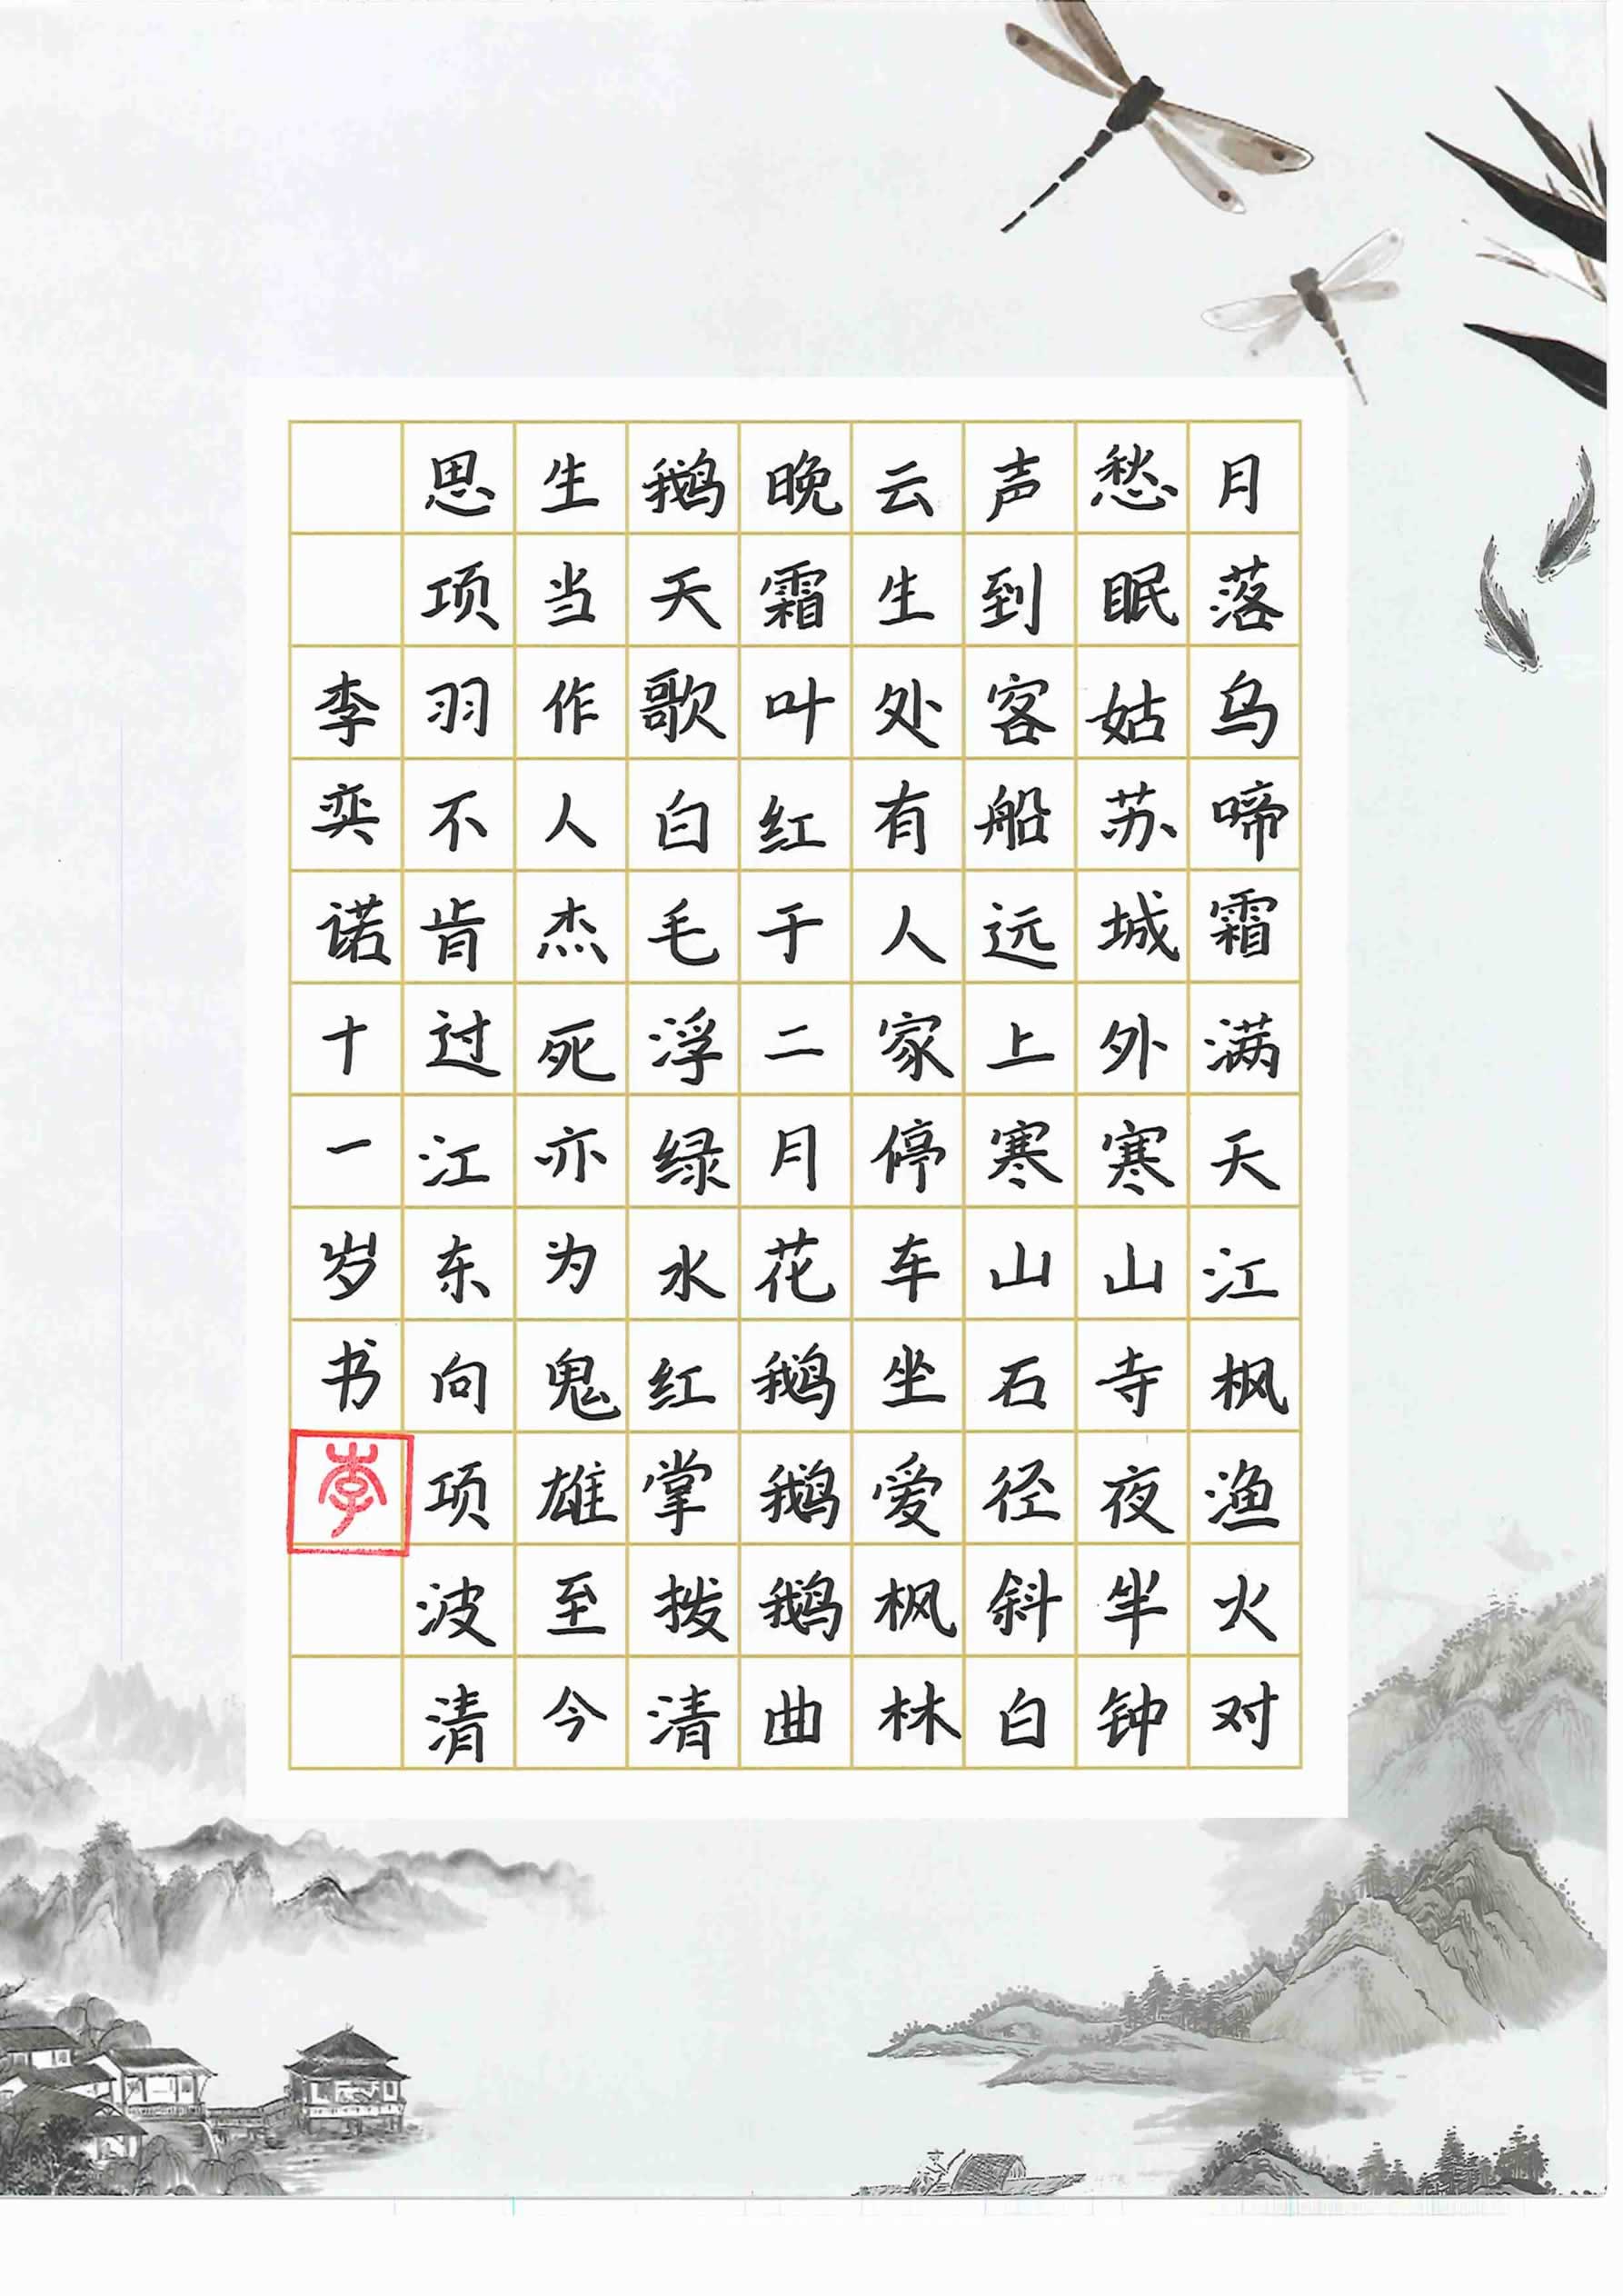 月落乌啼霜满天江枫渔火对
愁眠姑苏城外寒山寺夜半钟
声到客船远上寒山石径斜白
云生处有人家停车坐爱枫林
晚霜叶红于二月花鹅鹅鹅曲
鹅天歌白毛浮绿水红掌拨清
生当作人杰死亦为鬼雄至今
思项羽不肯过江东向项波清
李奕诺十一岁书
李